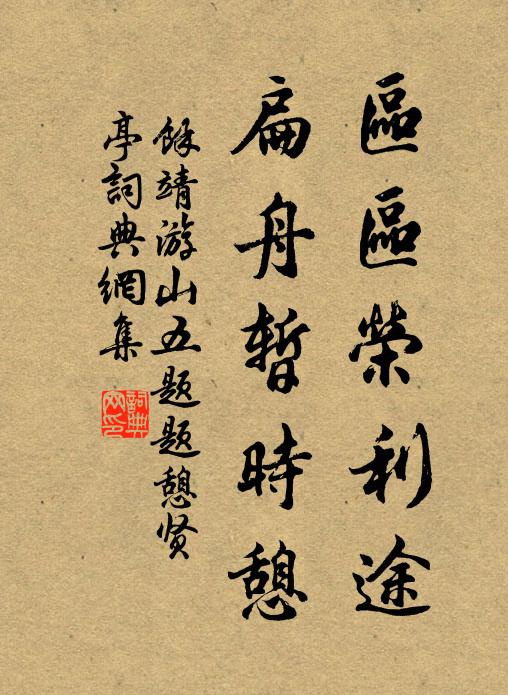 區區榮利途
扁舟暫時憩
餘靖游山五题题憩贤
亭詞典網集
詞典
网印